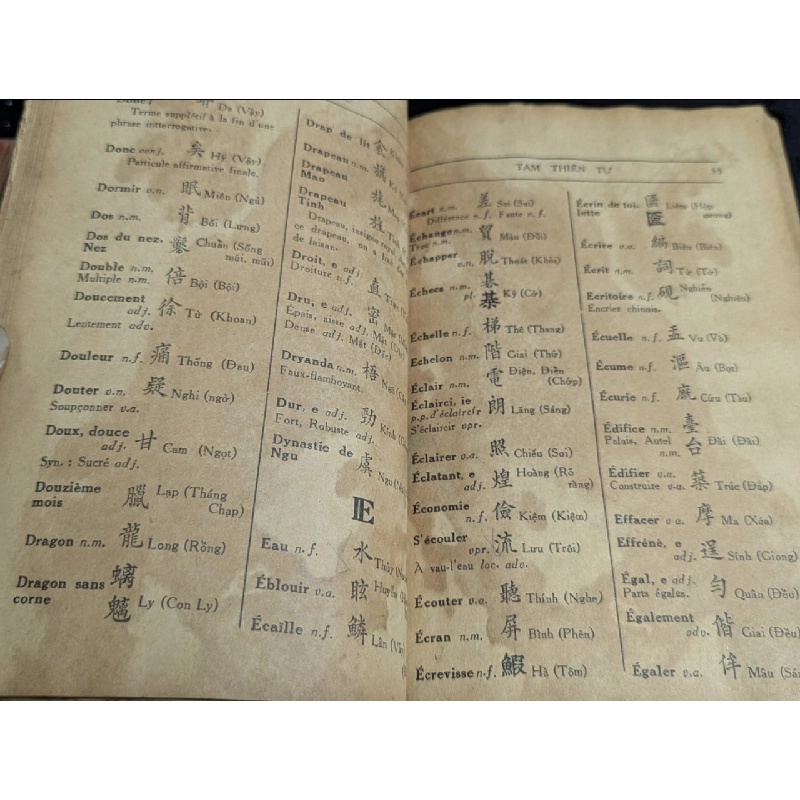 Donc? Da (Vậy)
Terme supplétif à la fin d'une
phrase interrogative.
Donc conj. 矣 Hỹ (Vậy)
Particule affirmative finale.
Dormir v.n. 眠 Miên (Ngủ)
Dos n.m. 背 Bối (Lưng)
Dos du nez, Chuẩn (Sống
Nez mũi, mũi)
Double n.m. 倍 Bội (Bội)
Multiple n.m.
Doucement
adj. 徐 Từ (Khoan)
Lentement adv.
Douleur n.f. 痛 Thống (Đau)
Douter v.n. 疑 Nghi (ngờ)
Soupçonner v.a.
Doux, douce
adj. 甘 Cam (Ngọt)
Syn. : Sucré adj.
Douzième 臘 Lạp (Tháng
mois Chạp)
Dragon n.m. 龍 Long (Rồng)
Dragon sans 螭
corne 魑 Ly (Con Ly)
Drap de lit 衾
Drapeau n.m. 旗
Drapeau
Mao 旄
Drapeau
Tinh 旌
Drapeau, insigne
ce drapeau, on a
de faisan.
Droit, e adj. 直
Droiture n.f.
Dru, e adj. 密
Épais, aisse adj. Mật
Dense adj. Mật
Dryanda n.m. 梧
Faux-flamboyant.
Dur, e adj. 勁
Fort, Robuste adj.
Dynastie de
Ngu 虞 Ngu
E
Eau n.f. 水 Thủy
Éblouir v.a. 眩 Huyễn
Écaille n.f. 鱗 Lân
TAM THIÊN TỰ 55
Écart n.m. 差 Sai (Sai)
Différence n.f. Faute n.f.
Échange n.m. 貿 Mậu (Đổi)
Troc n.m.
Échapper
v.n. 脫 Thoát (Khỏi)
Échecs n.m. 碁
pl. 棊 Kỳ (Cờ)
Échelle n.f. 梯 Thê (Thang)
Échelon n.m. 階 Giai (Thứ)
Éclair n.m. 電 Điện, Điển
(Chớp)
Éclairci, ie
p.p. d'éclaircir 朗 Lãng (Sáng)
S'éclaircir vpr.
Éclairer v.a. 照 Chiếu (Sui)
Éclatant, e
adj. 煌 Hoàng (Rỡ
ràng)
Économie
n.f. 儉 Kiệm (Kiệm)
S'écouler
vpr. 流 Lưu (Trôi)
À vau-l'eau loc. adv.
Écouter v.a. 聽 Thính (Nghe)
Écran n.m. 屏 Bình (Phên)
Écrevisse n.f. 鰕 Hà (Tôm)
Écrin de toi-
lette 匳 Liêm (Hộp
gương)
Écrire v.a. 編 Biên (Biên)
Écrit n.m. 詞 Từ (Tờ)
Écritoire n.f. 硯 Nghiên
(Nghiên)
Encrier chinois.
Écuelle n.f. 盂 Vu (Vò)
Écume n.f. 漚 Âu (Bọt)
Écurie n.f. 廐 Cứu (Tàu)
Édifice n.m. 臺
Palais, Autel 台 Đài (Đài)
n.m.
Édifier v.a. 築 Trúc (Đắp)
Construire v.a.
Effacer v.a. 摩 Ma (Xóa)
Effréné, e
adj. 逞 Sính (Giong)
Égal, e adj. 勻 Quân (Đều)
Parts égales.
Également
adv. 偕 Giai (Đều)
Égaler v.a. 侔 Mâu